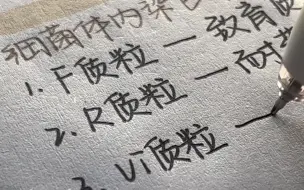 细菌体内染色
1. F质粒 — 致育质
2. R质粒 — 耐
3. Vi质粒 —